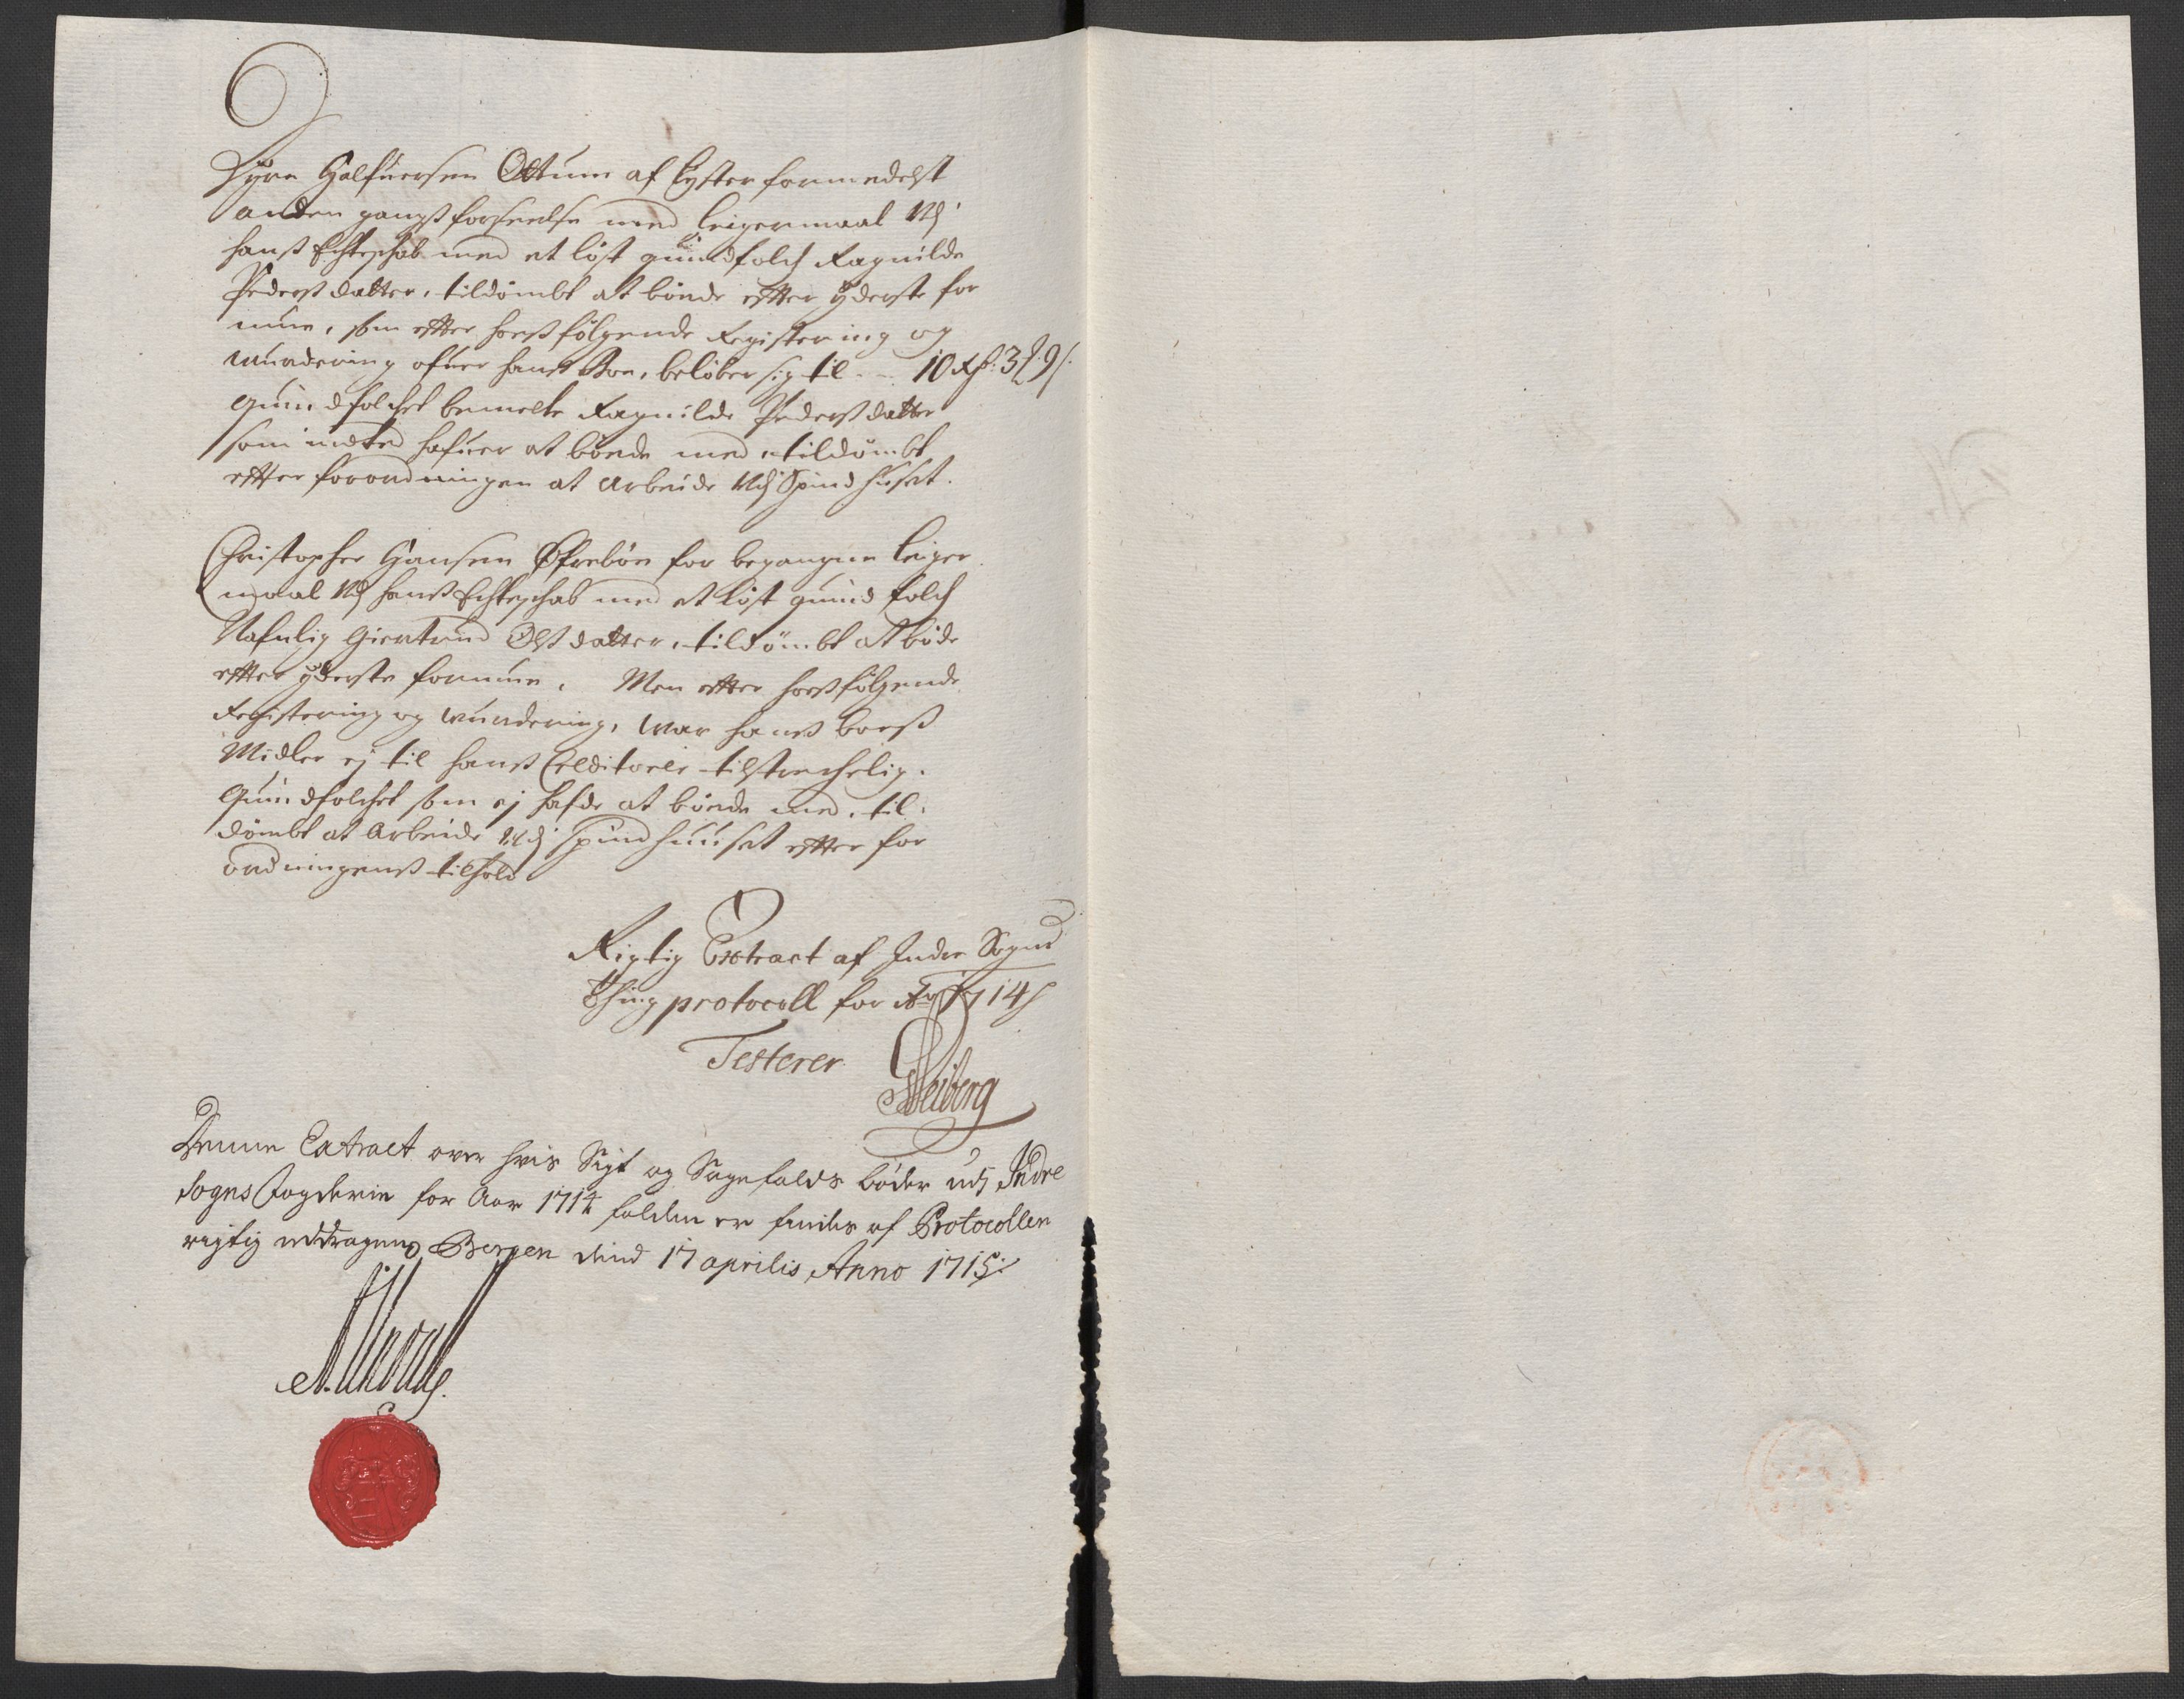 Siver Halfuersen Ottum af Lyster formedelst
anden gangs forseelse med leigermaal udj
hanß Echteschab med et löst quindfolch Ragnilde
Pederß datter, tildömbt at böede efter yderste for
mue, som efter hoesfölgende Registering og
wurdering ofuer hanß Boe, belöber sig til - - 10 Rdr: 3 ʄ 9 s:
Quindfolchet bemelte Ragnilde Pederß datter
som indted hafuer at böede med, tildömbt
efter forordningen at arbeide udj Spindhuset.
Christopher Hansen Øfreböe for begangne leiger
maal udj hanß Echteschab med et löst quind folch
Nafnlig Giertrud Olß datter, tildömbt at böde
efter yderste formue, Men efter hoesfölgende
Registering og wurdering, war hanß boeß
Midler ej til hanß Creditorer tilstrechelig.
Quindfolchet som ej hafde at böede med, til-
dömbt at Arbeide udj spindhuuset efter for
ordningenß tilhold
Rigtig Extract af Indre Sogns
Thing protocoll for Ao 1714
Testerer Heiberg
Denne Extract over hvis Sigt og Sagefalds böder udj Indre
Sogns Fogderie for Aar 1714 falden er findes af Protocollen
rigtig uddragen, Bergen dend 17 aprilis Anno 1715: